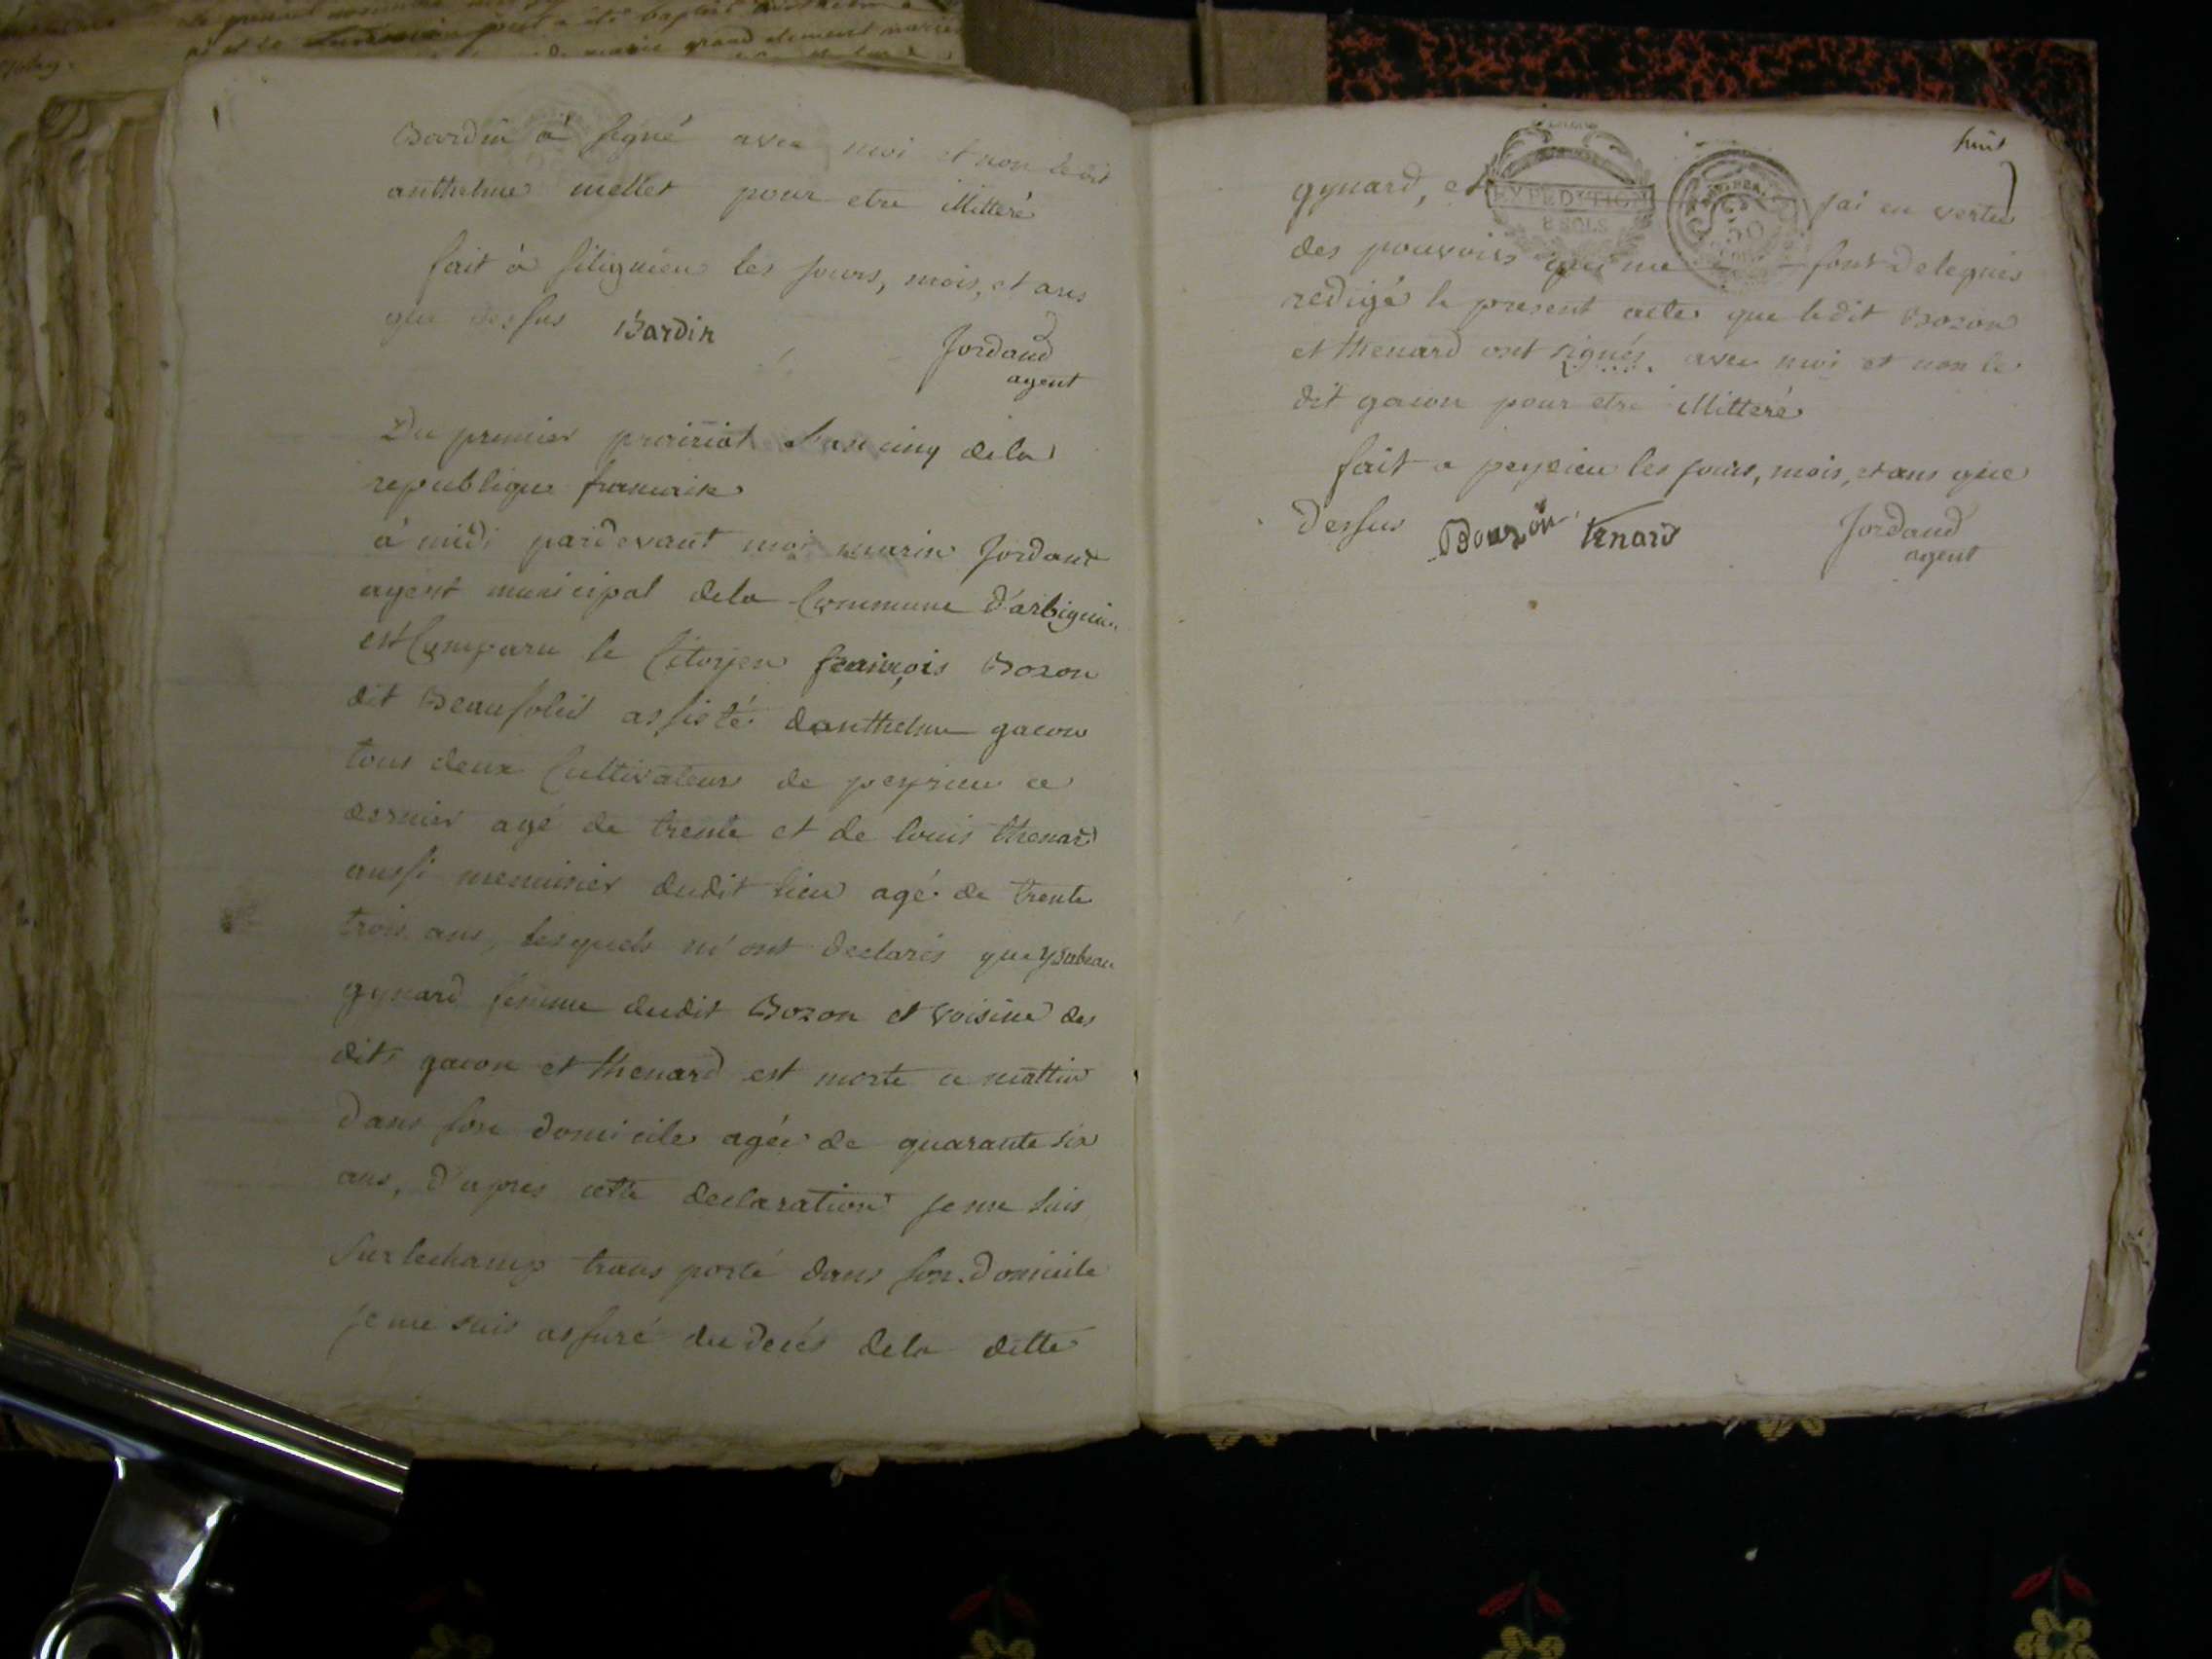 Bardin a signé avec moi et non le dit
anthelme mellet pour etre illitteré
fait à silignieu les jours, mois, et ans
que dessus Bardin
Jordand
agent
Du premier prairial l'an cinq de la
republique francaise
à midi pardevant moi marin Jordand
agent municipal dela Commune d'arbignieu
est Comparu le Citoyen francois Bozon
dit Beausoleil assisté danthelme gacon
tous deux Cultivateurs de peyzieu ce
dernier agé de trente et de louis thenard
aussi menuisier dudit lieu agé de trente
trois ans, lesquels m'ont declarés que ysabeau
gynard femme dudit Bozon et voisine des
dits gacon et thenard est morte ce mattin
dans son domicile agée de quarante six
ans, d'apres cette declaration je me suis
sur lechamp trans porté dans son domicile
je me suis assuré du decés dela ditte
huit
gynard, et j'ai en vertu
EXPEDITION
8 SOLS
50
des pouvoirs qui me sont delegués
redigé le present acte que ledit Bozon
et thenard ont signés avec moi et non le
dit gacon pour etre illitteré
fait a peyzieu les jours, mois, et ans que
dessus Bouzon tenard Jordand
agent